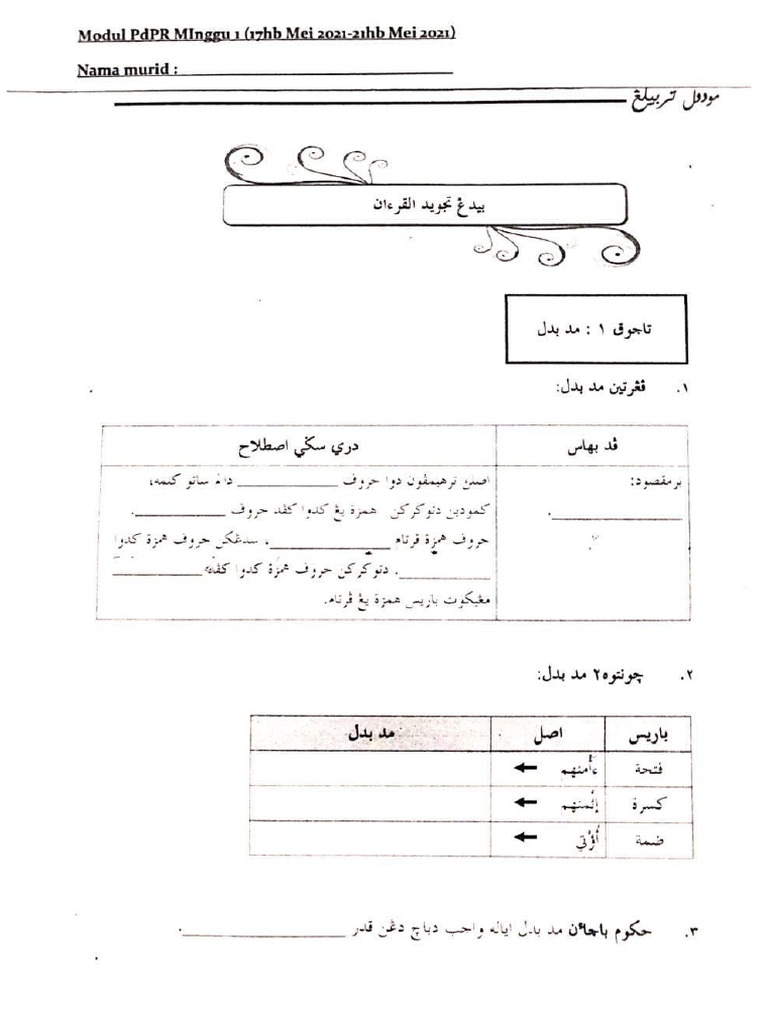 Modul PdPR MInggu 1 (17hb Mei 2021-21hb Mei 2021)
Nama murid : ______________________
مودول تربيلڠ
بيدڠ تجويد القرءان
تاجوق ١ : مد بدل
١. ڤڠرتين مد بدل:
ڤد بهاس
دري سݢي اصطلاح
برمقصود:
____________.
اصلڽ ترهيمڤون دوا حروف ____________ دالم ساتو كلمه،
كمودين دتوكركن همزة يڠ كدوا كڤد حروف ____________.
حروف همزة ڤرتام ____________، سدڠكن حروف همزة كدوا
____________. دتوكركن حروف همزة كدوا كڤد ____________
مڠيكوت باريس همزة يڠ ڤرتام.
٢. چونتوه٢ مد بدل:
باريس اصل مد بدل
فتحة ءَأْمنهم ←
كسرة إِئْمنهم ←
ضمة أُؤْتي ←
٣. حكوم باچاٴن مد بدل اياله واجب دباچ دڠن قدر ____________.